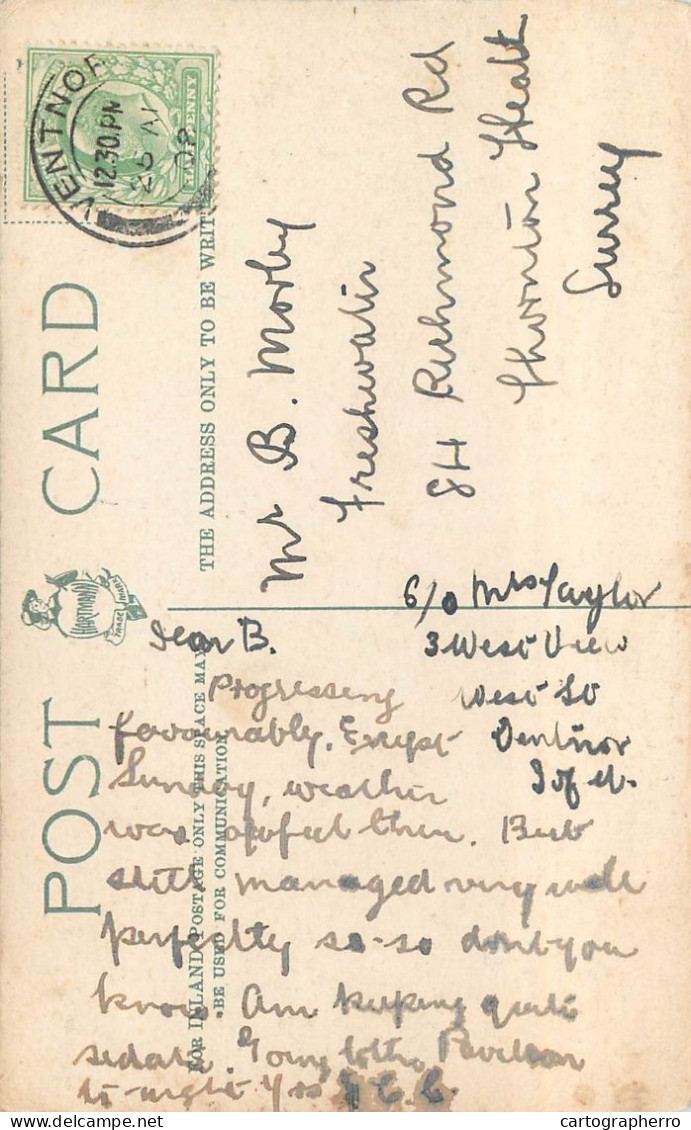 VENTNOR
12.30.PM
26
08
HALFPENNY
POST CARD
HARTMANN
TRADE MARK
THE ADDRESS ONLY TO BE WRIT
FOR INLAND POSTAGE ONLY THIS SPACE MAY
BE USED FOR COMMUNICATION
Mr B. Morley
Freshwater
84 Richmond Rd
Thornton Heath
Surrey
c/o Mrs Taylor
3 West View
West St
Ventnor
I of W.
Dear B.
Progressing
favourably. Except
Sunday, weather
was awful then. But
still managed very well
perfectly so-so dont you
know. Am keeping quite
sedate. Going to the Pavilion
to-night Yrs
cartographerro.com